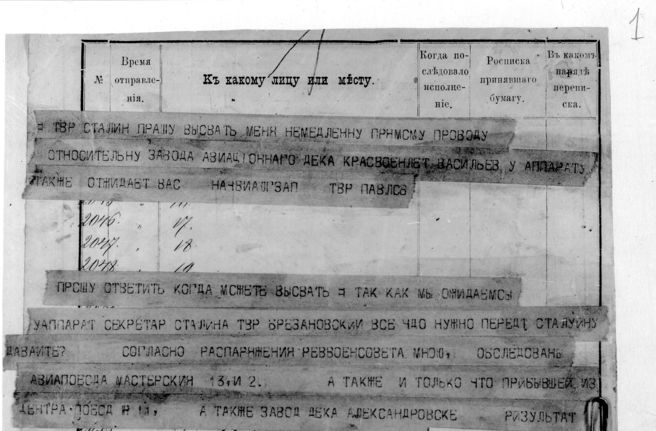 1
№
Время отправле- нія.
Къ какому лицу или мѣсту.
Когда по- слѣдовало исполне- ніе.
Росписка принявшаго бумагу.
Въ какомъ нарядѣ перепи- ска.
= ТВР СТАЛИН ПРАШУ ВЫСВАТЬ МЕНЯ НЕМЕДЛЕННУ ПРЯМСМУ ПРОВОДУ
ОТНОСИТЕЛЬНУ ЗАВОДА АВИАЦIОННАГО ДЕКА КРАСВОЕНЛЕТ ВАСИЛЬЕВ У АППАРАТУ
ТАКЖЕ ОТЖИДАЕТ ВАС ТВР ПАВЛСВ
2046. " 17.
2047. " 18
2048 " 19
ПРОШУ ОТВЕТИТЬ КОГДА МСЖЕТЕ ВЫСВАТЬ = ТАК КАК МЫ ОЖИДАЕМСЫ
УАППАРАТ СЕКРЕТАР СТАЛИНА ТВР БРЕЗАНОВСКИЙ ВСЕ ЧДО НУЖНО ПЕРЕДТ СТАЛУИНУ
ДАВАЙТЕ? СОГЛАСНО РАСПАРЯЖЕНИЯ РЕВВОЕНСОВЕТА МНОЮ, ОБСЛЕДОВАНЫ
АВИАПОЕСДА МАСТЕРСКИЯ 13,И 2. А ТАКЖЕ И ТОЛЬКО ЧТО ПРИБЫВШЕЙ ИЗ
ЦЕНТРА ПОЕСД А ТАКЖЕ ЗАВСД ДЕКА АЛЕКСАНДРОВСКЕ РИЗУЛЬТАТ